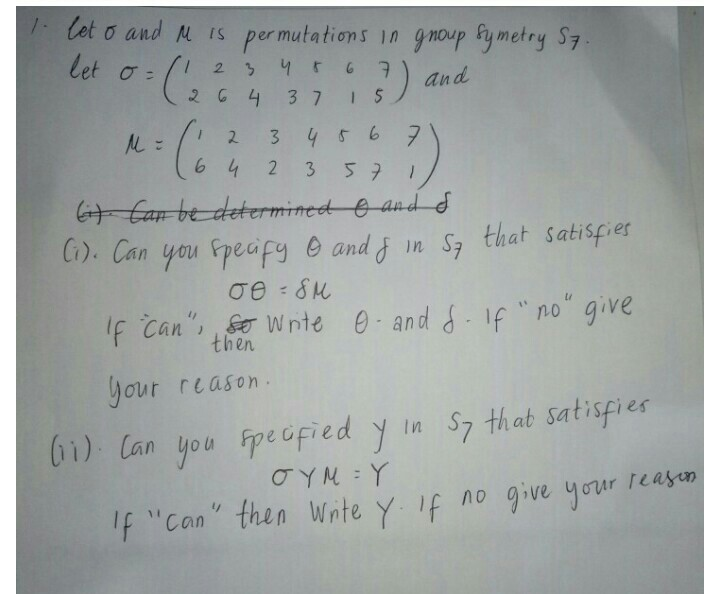 1. let σ and M is permutations in group symetry S7.
let σ = ( 1 2 3 4 5 6 7 ) and
2 6 4 3 7 1 5
M = ( 1 2 3 4 5 6 7 )
6 4 2 3 5 7 1
(i). Can be determined θ and δ
(i). Can you specify θ and δ in S7 that satisfies
σθ = δM
If "can", then Write θ and δ. If "no" give
your reason.
(ii). Can you specified y in S7 that satisfies
σYM = Y
If "can" then Write Y. If no give your reason